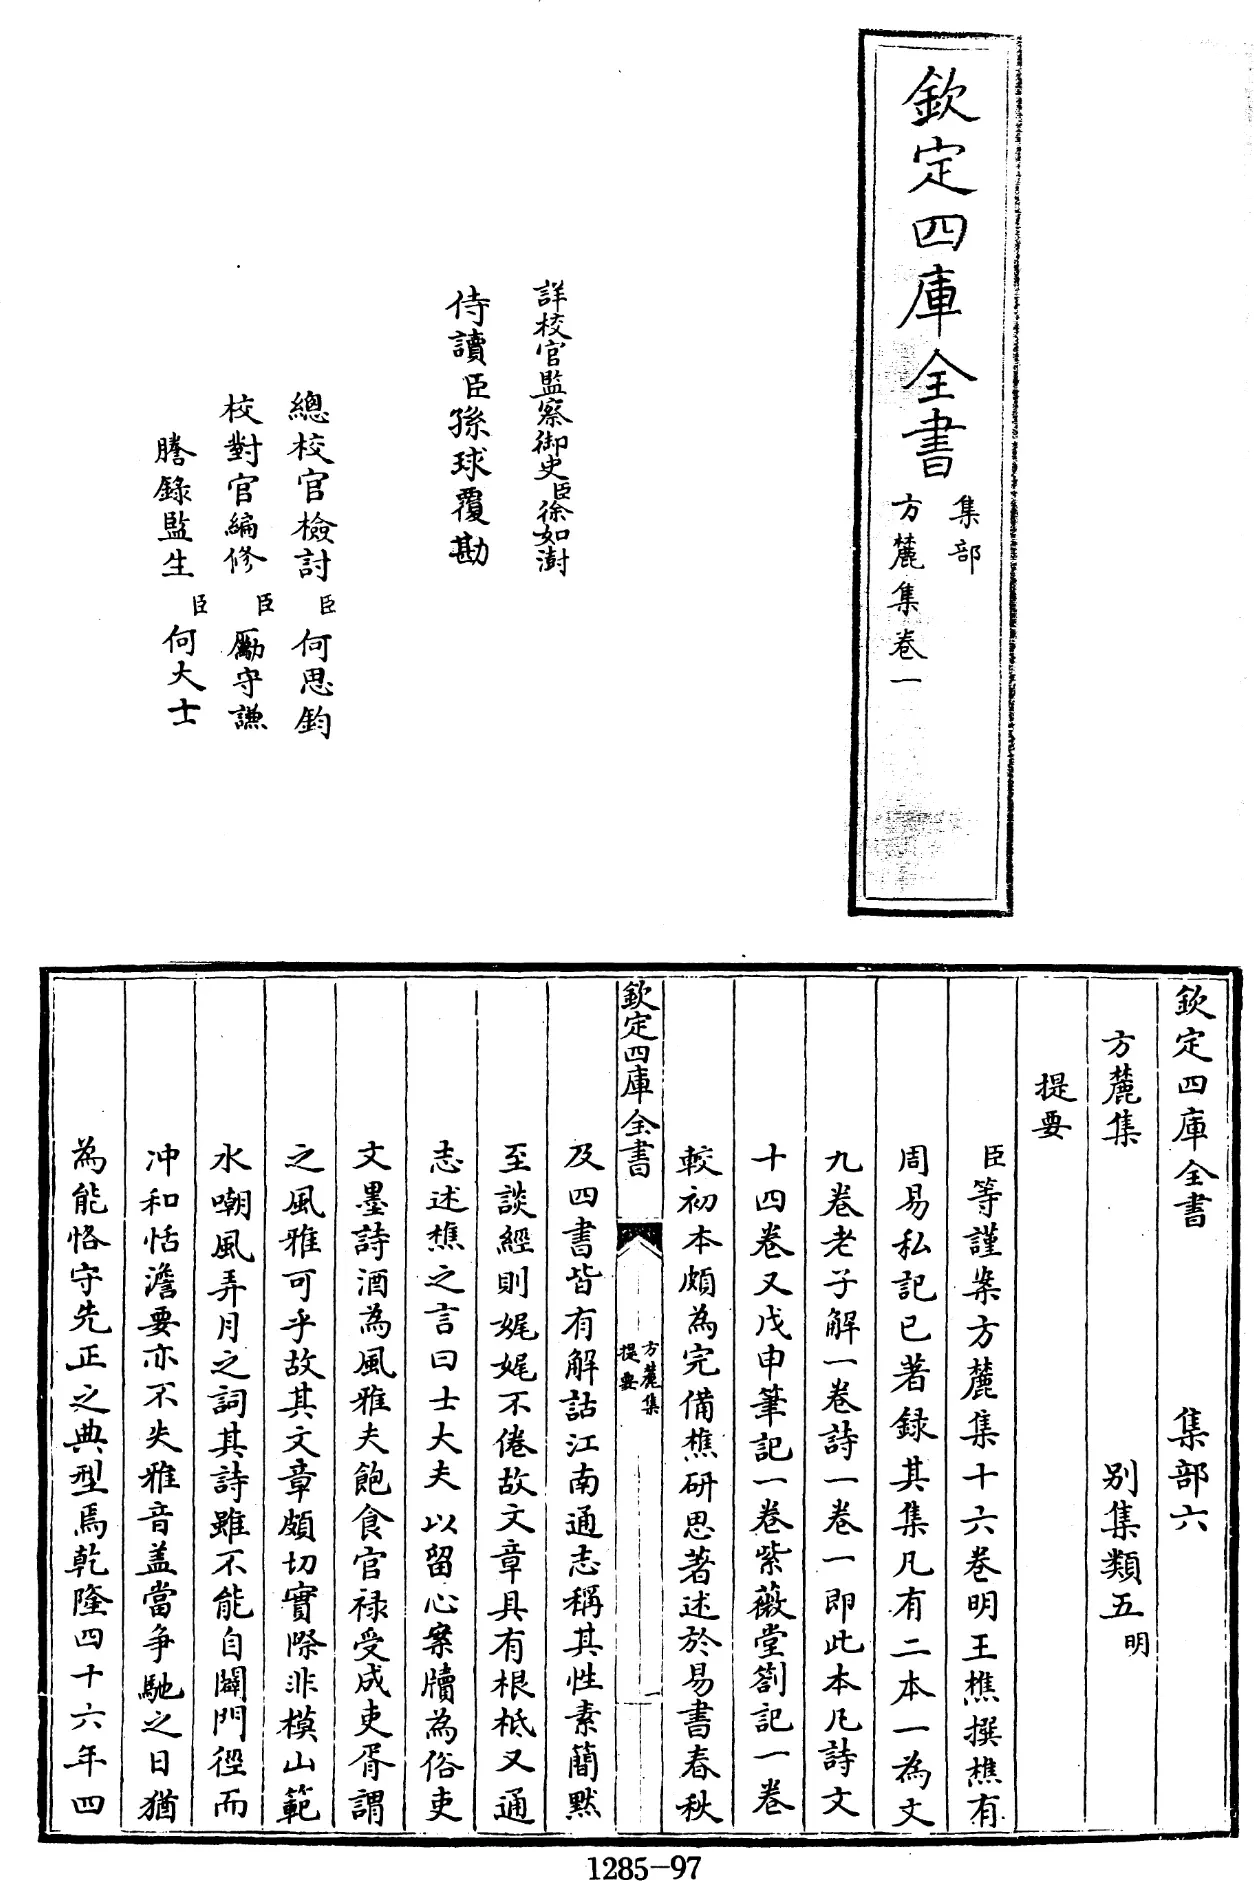 欽定四庫全書
集部
方麓集卷一
詳校官監察御史臣徐如澍
侍讀臣孫球覆勘
總校官檢討臣何思鈞
校對官編修臣勵守謙
謄錄監生臣何大士
欽定四庫全書 集部六
方麓集 別集類五明
提要
臣等謹案方麓集十六卷明王樵撰樵有
周易私記已著録其集凡有二本一為文
九卷老子解一卷詩一卷一即此本凡詩文
十四卷又戊申筆記一卷紫薇堂劄記一卷
較初本頗為完備樵研思著述於易書春秋
欽定四庫全書
方麓集
提要
一
及四書皆有解詁江南通志稱其性素簡默
至談經則娓娓不倦故文章具有根柢又通
志述樵之言曰士大夫以留心案牘為俗吏
文墨詩酒為風雅夫飽食官禄受成吏胥謂
之風雅可乎故其文章頗切實際非模山範
水嘲風弄月之詞其詩雖不能自闢門徑而
冲和恬澹要亦不失雅音盖當争馳之日猶
為能恪守先正之典型焉乾隆四十六年四
1285-97